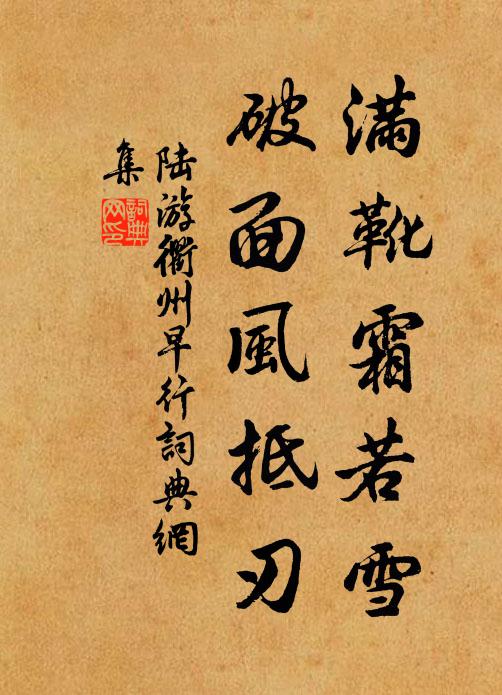 滿靴霜若雪
破面風抵刃
陸游衢州早行詞典網
集
詞典
网印